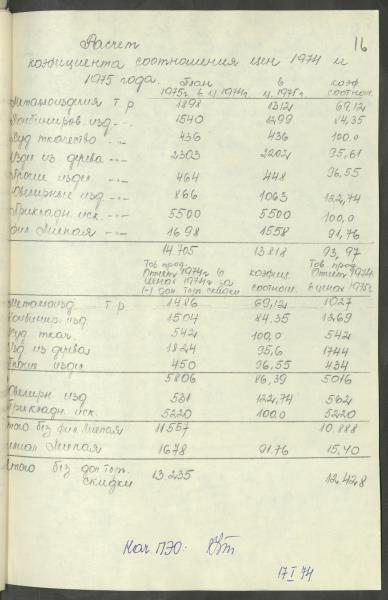 16
Расчет
коэфициента соотношения цен 1974 и
1975 года.
План 1975г. в ц 1974г в ц. 1975г коэф. соотнош.
Металоизделия т.р. 1898 1312 69,12
Комбиниров. изд. -"- 1540 1299 84,35
Худ ткачество -"- 436 436 100,0
Изд. из дерева -"- 2303 2202 95,61
Прочие издел. -"- 464 448 96.55
Ювелирные изд. -"- 866 1063 122,74
Прикладн. иск. -"- 5500 5500 100,0
фил. -"- 1698 1558 91,76
14.705 13818 93,97
Тов. прод. Отчет 1974г в ценах 1974г за (-) доп. торг. скидки коэфиц. соотнош. Тов. прод. Отчет 1974г в ценах 1975г
Металоизд. т.р. 1486 69,12 1027
Комбинир. изд. 1504 84.35 1269
Худ ткач. 542 100,0 542
Изд из дерева 1824 95,6 1744
Прочие издел 450 96,55 434
5806 86,39 5016
Ювелирн. изд 531 122,74 562
Прикладн. иск. 5220 100.0 5220
Итого без фил. 11557 10.888
филиал 1678 91.76 15.40
Итого без доп торг. скидки 13.235 12.428
Нач. ПЭО:
17 I 74